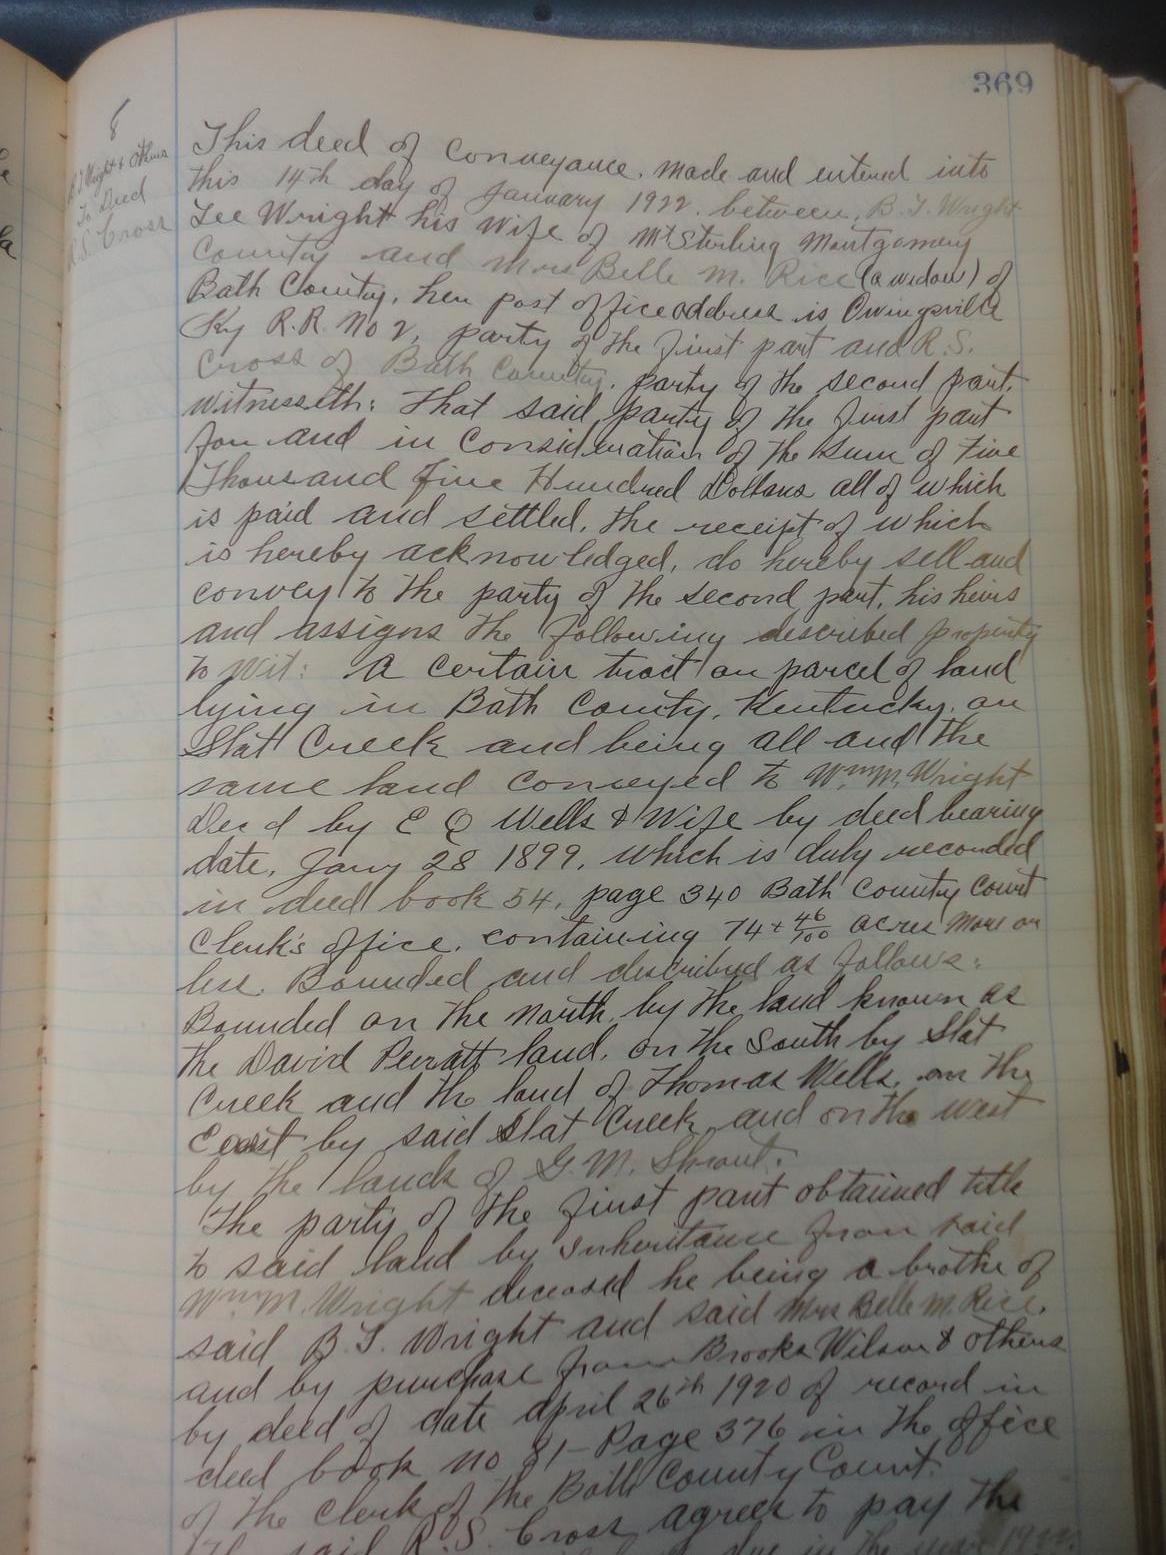 369
8
B.T. Wright & Others
To Deed
R.S. Cross
This deed of conveyance, made and entered into
this 14th day of January 1922. between, B.T. Wright
Lee Wright his wife of Mt Sterling Montgomery
County and Mrs Belle M. Rice (a widow) of
Bath County, her post office address is Owingsville
Ky R.R. No 2, party of the first part and R.S.
Cross of Bath County, party of the second part.
Witnesseth: That said party of the first part
for and in consideration of the sum of Five
Thousand Five Hundred Dollars all of which
is paid and settled, the receipt of which
is hereby acknowledged, do hereby sell and
convey to the party of the second part, his heirs
and assigns the following described property
to wit: A certain tract or parcel of land
lying in Bath County, Kentucky, on
Slat Creek and being all and the
same land conveyed to Wm M. Wright
Decd by E Q Wells & Wife by deed bearing
date, Jany 28 1899, which is duly recorded
in deed book 54, page 340 Bath County Court
Clerk's office, containing 74 + 46/100 acres more or
less. Bounded and described as follows:
Bounded on the North by the land known as
the David Peratt land, on the South by Slat
Creek and the land of Thomas Wells, on the
East by said Slat Creek and on the west
by the lands of G.M. Shrout.
The party of the first part obtained title
to said land by Inheritance from said
Wm M. Wright deceased he being a brothe of
said B.T. Wright and said Mrs Belle M. Rice.
and by purchase from Brooks Wilson & others
by deed of date april 26th 1920 of record in
deed book no 81- Page 376 in the office
of the Clerk of the Bath County Court.
The said R.S. Cross agrees to pay the
due in the year 1922.